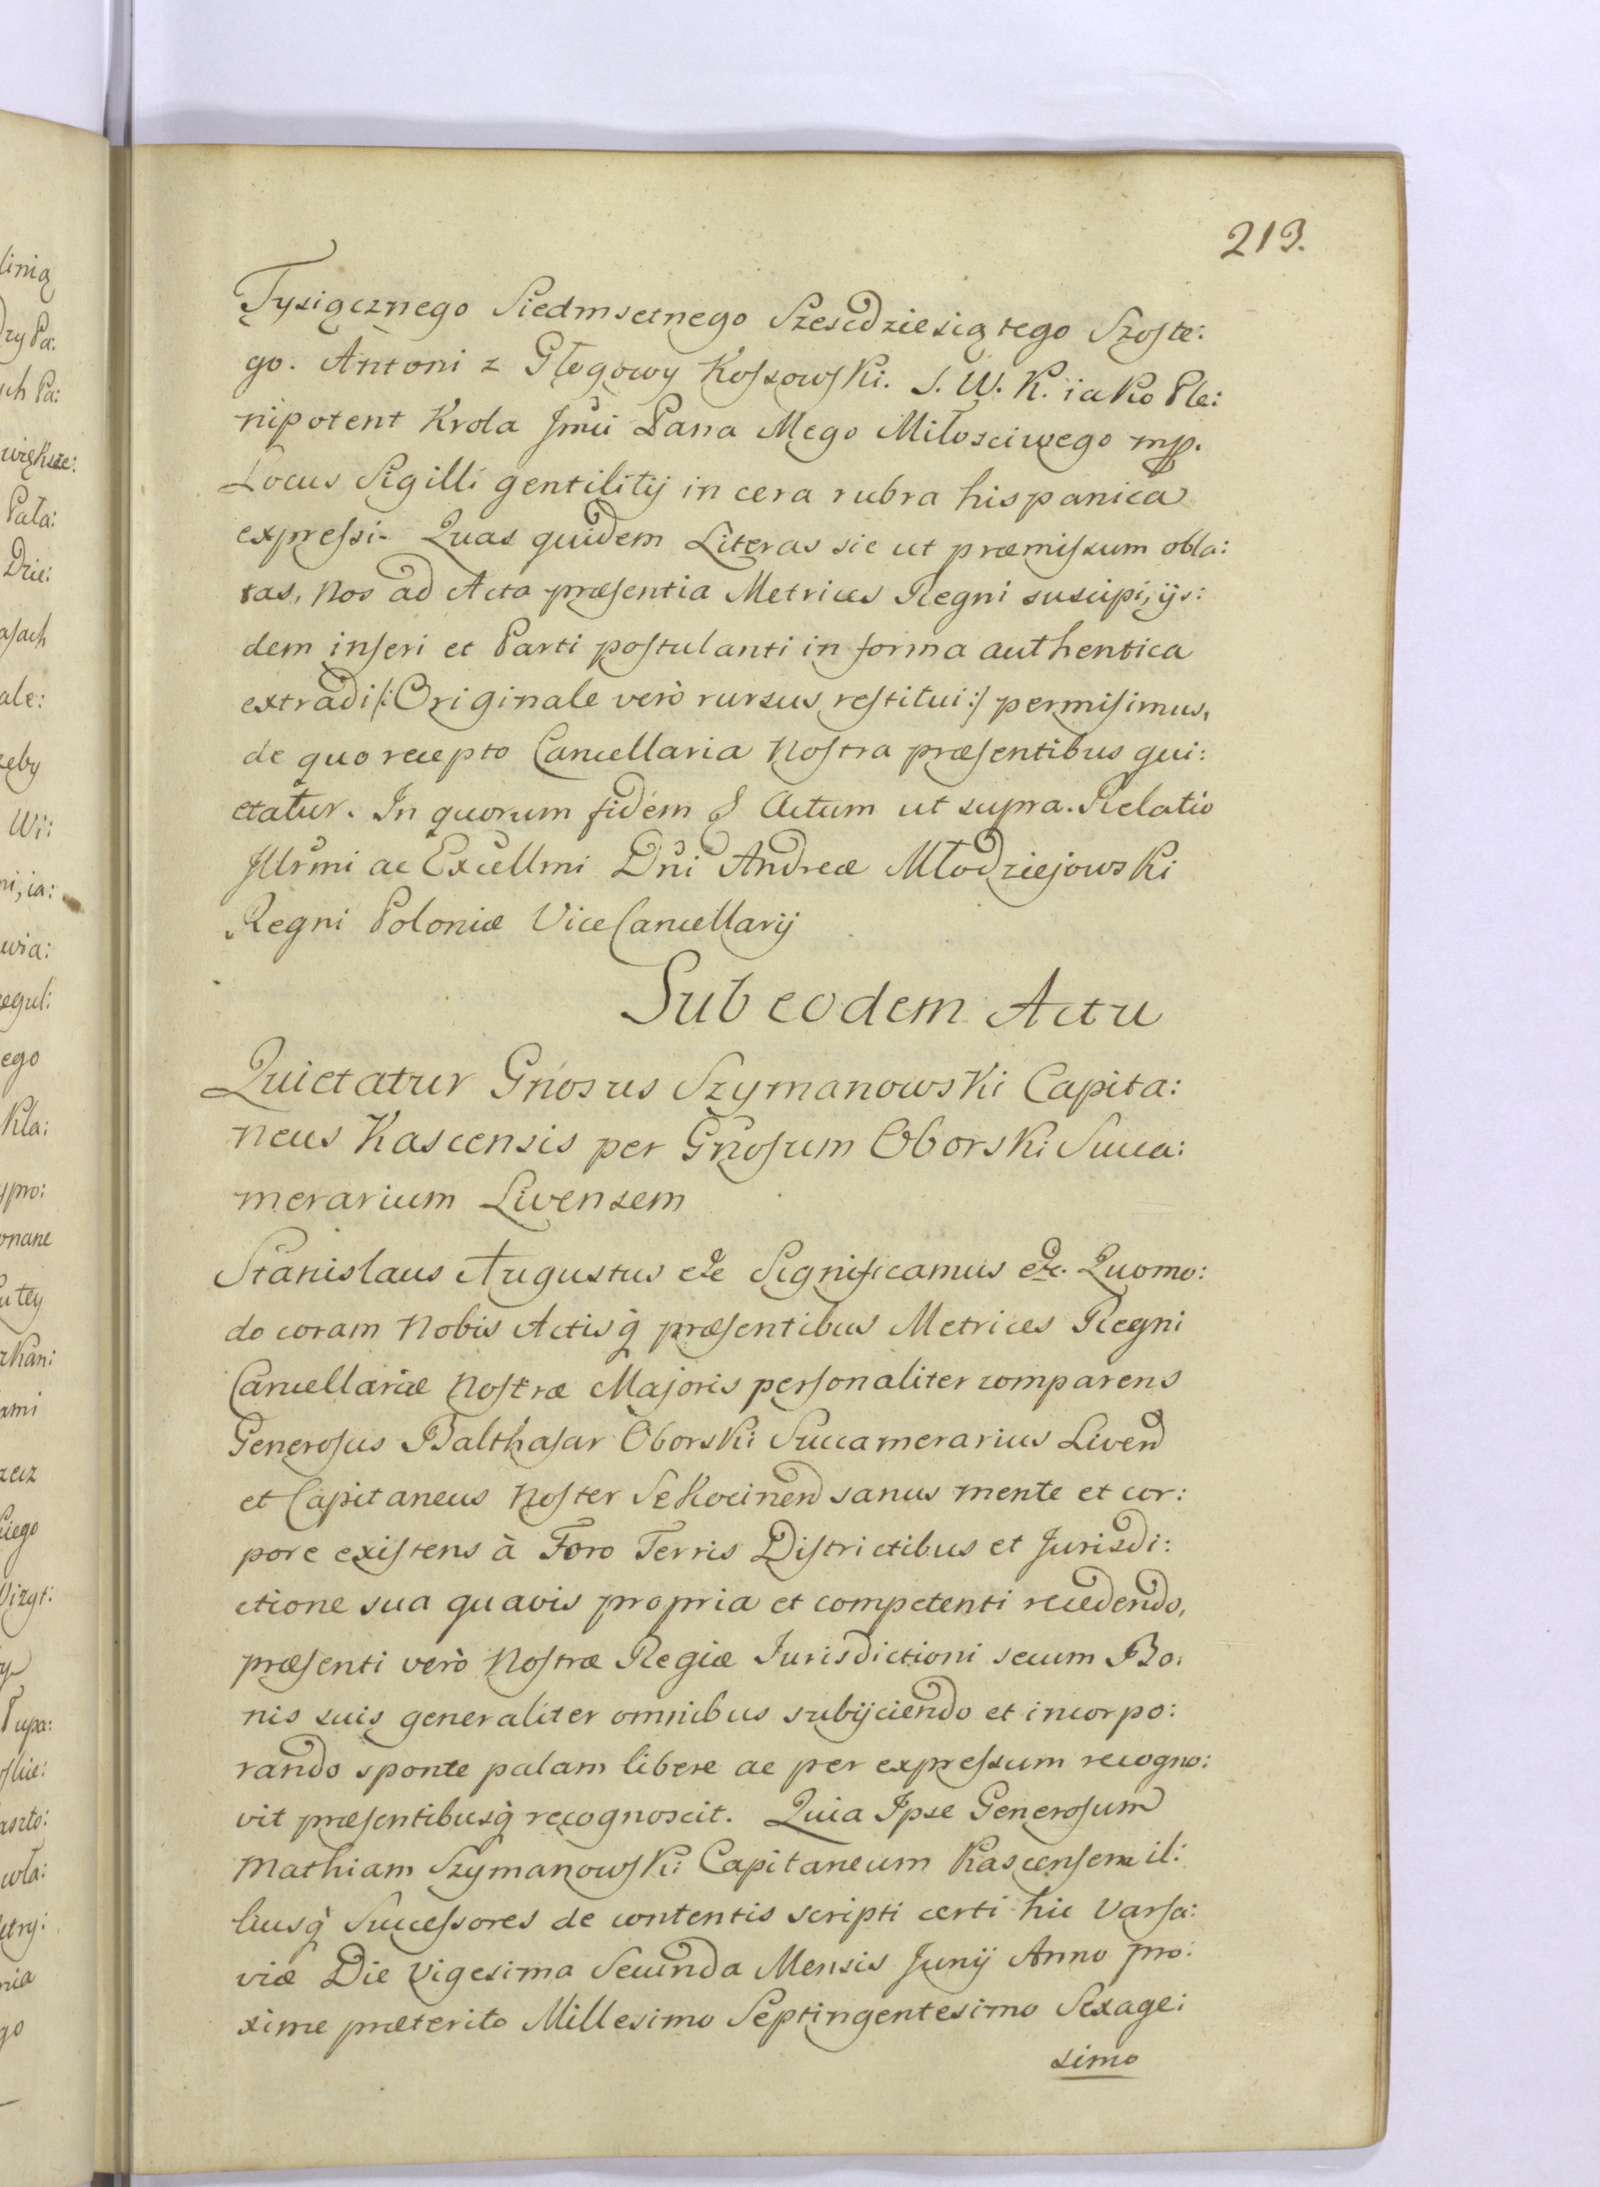 213.
Tysiącznego Siedmsetnego Szescdziesiątego Szoste:
go. Antoni z Głogowy Kossowski. S. W. K. iako Ple:
nipotent Krola Jmći Pana Mego Miłosciwego mp.
Locus Sigilli gentilitij in cera rubra hispanica
expressi. Quas quidem Literas sic ut præmissum obla:
tas, Nos ad Acta præsentia Metrices Regni suscipi, ijs:
dem inseri et Parti postulanti in forma authentica
extradi /: Originale verò rursus restitui :/ permisimus,
de quo recepto Cancellaria Nostra præsentibus qui:
etatur. In quorum fidem & Actum ut supra. Relatio
Illrmi ac Excellmi Dni Andreæ Młodziejowski
Regni Poloniæ Vice Cancellarij
Sub eodem Actu
Quietatur Gnosus Szymanowski Capita:
neus Kascensis per Gnosum Oborski Succa:
merarium Livensem
Stanislaus Augustus etc Significamus etc. Quomo:
do coram Nobis Actisq̃ præsentibus Metrices Regni
Cancellariæ Nostræ Majoris personaliter comparens
Generosus Balthasar Oborski Succamerarius Liven
et Capitaneus Noster Sekocinen sanus mente et cor:
pore existens à Foro Terris Districtibus et Jurisdi:
ctione sua quavis propria et competenti recedendo,
præsenti verò Nostræ Regiæ Jurisdictioni secum Bo:
nis suis generaliter omnibus subijciendo et incorpo:
rando sponte palam libere ac per expressum recogno:
vit præsentibusq̃ recognoscit. Quia Ipse Generosum
Mathiam Szymanowski Capitaneum Kascensem il:
liusq̃ Successores de contentis scripti certi hic Varsa:
viæ Die Vigesima Secunda Mensis Junij Anno pro:
xime præterito Millesimo Septingentesimo Sexage:
simo